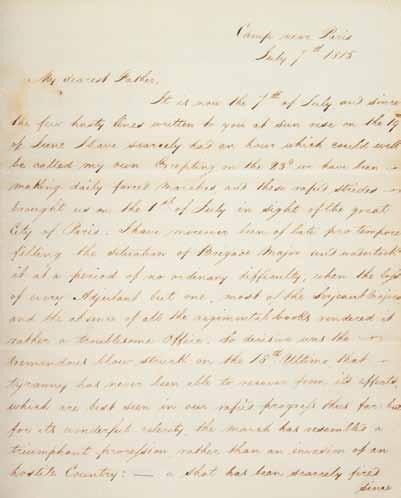 Camp near Paris
July 7th 1815
My dearest Father,
It is now the 7th of July and since
the few hasty lines written to you at sun rise on the 19th
of June I have scarcely had an hour which could well
be called my own Excepting on the 23d we have been
making daily forced marches and these rapid strides
brought us on the 1st of July in sight of the great
City of Paris. I have moreover been of late pro tempore
filling the situation of Brigade Major and undertook
it at a period of no ordinary difficulty, when the loss
of every Adjutant but one, most of the Serjeant Majors
and the absence of all the regimental books rendered it
rather a troublesome Office. So decisive was the
tremendous blow struck on the 18th Ultimo that
tyranny has never been able to recover from its effects,
which are best seen in our rapid progress thus far but
for its wonderful celerity the march has resembled a
triumphant procession rather than an invasion of an
hostile Country: — a shot has been scarcely fired
since